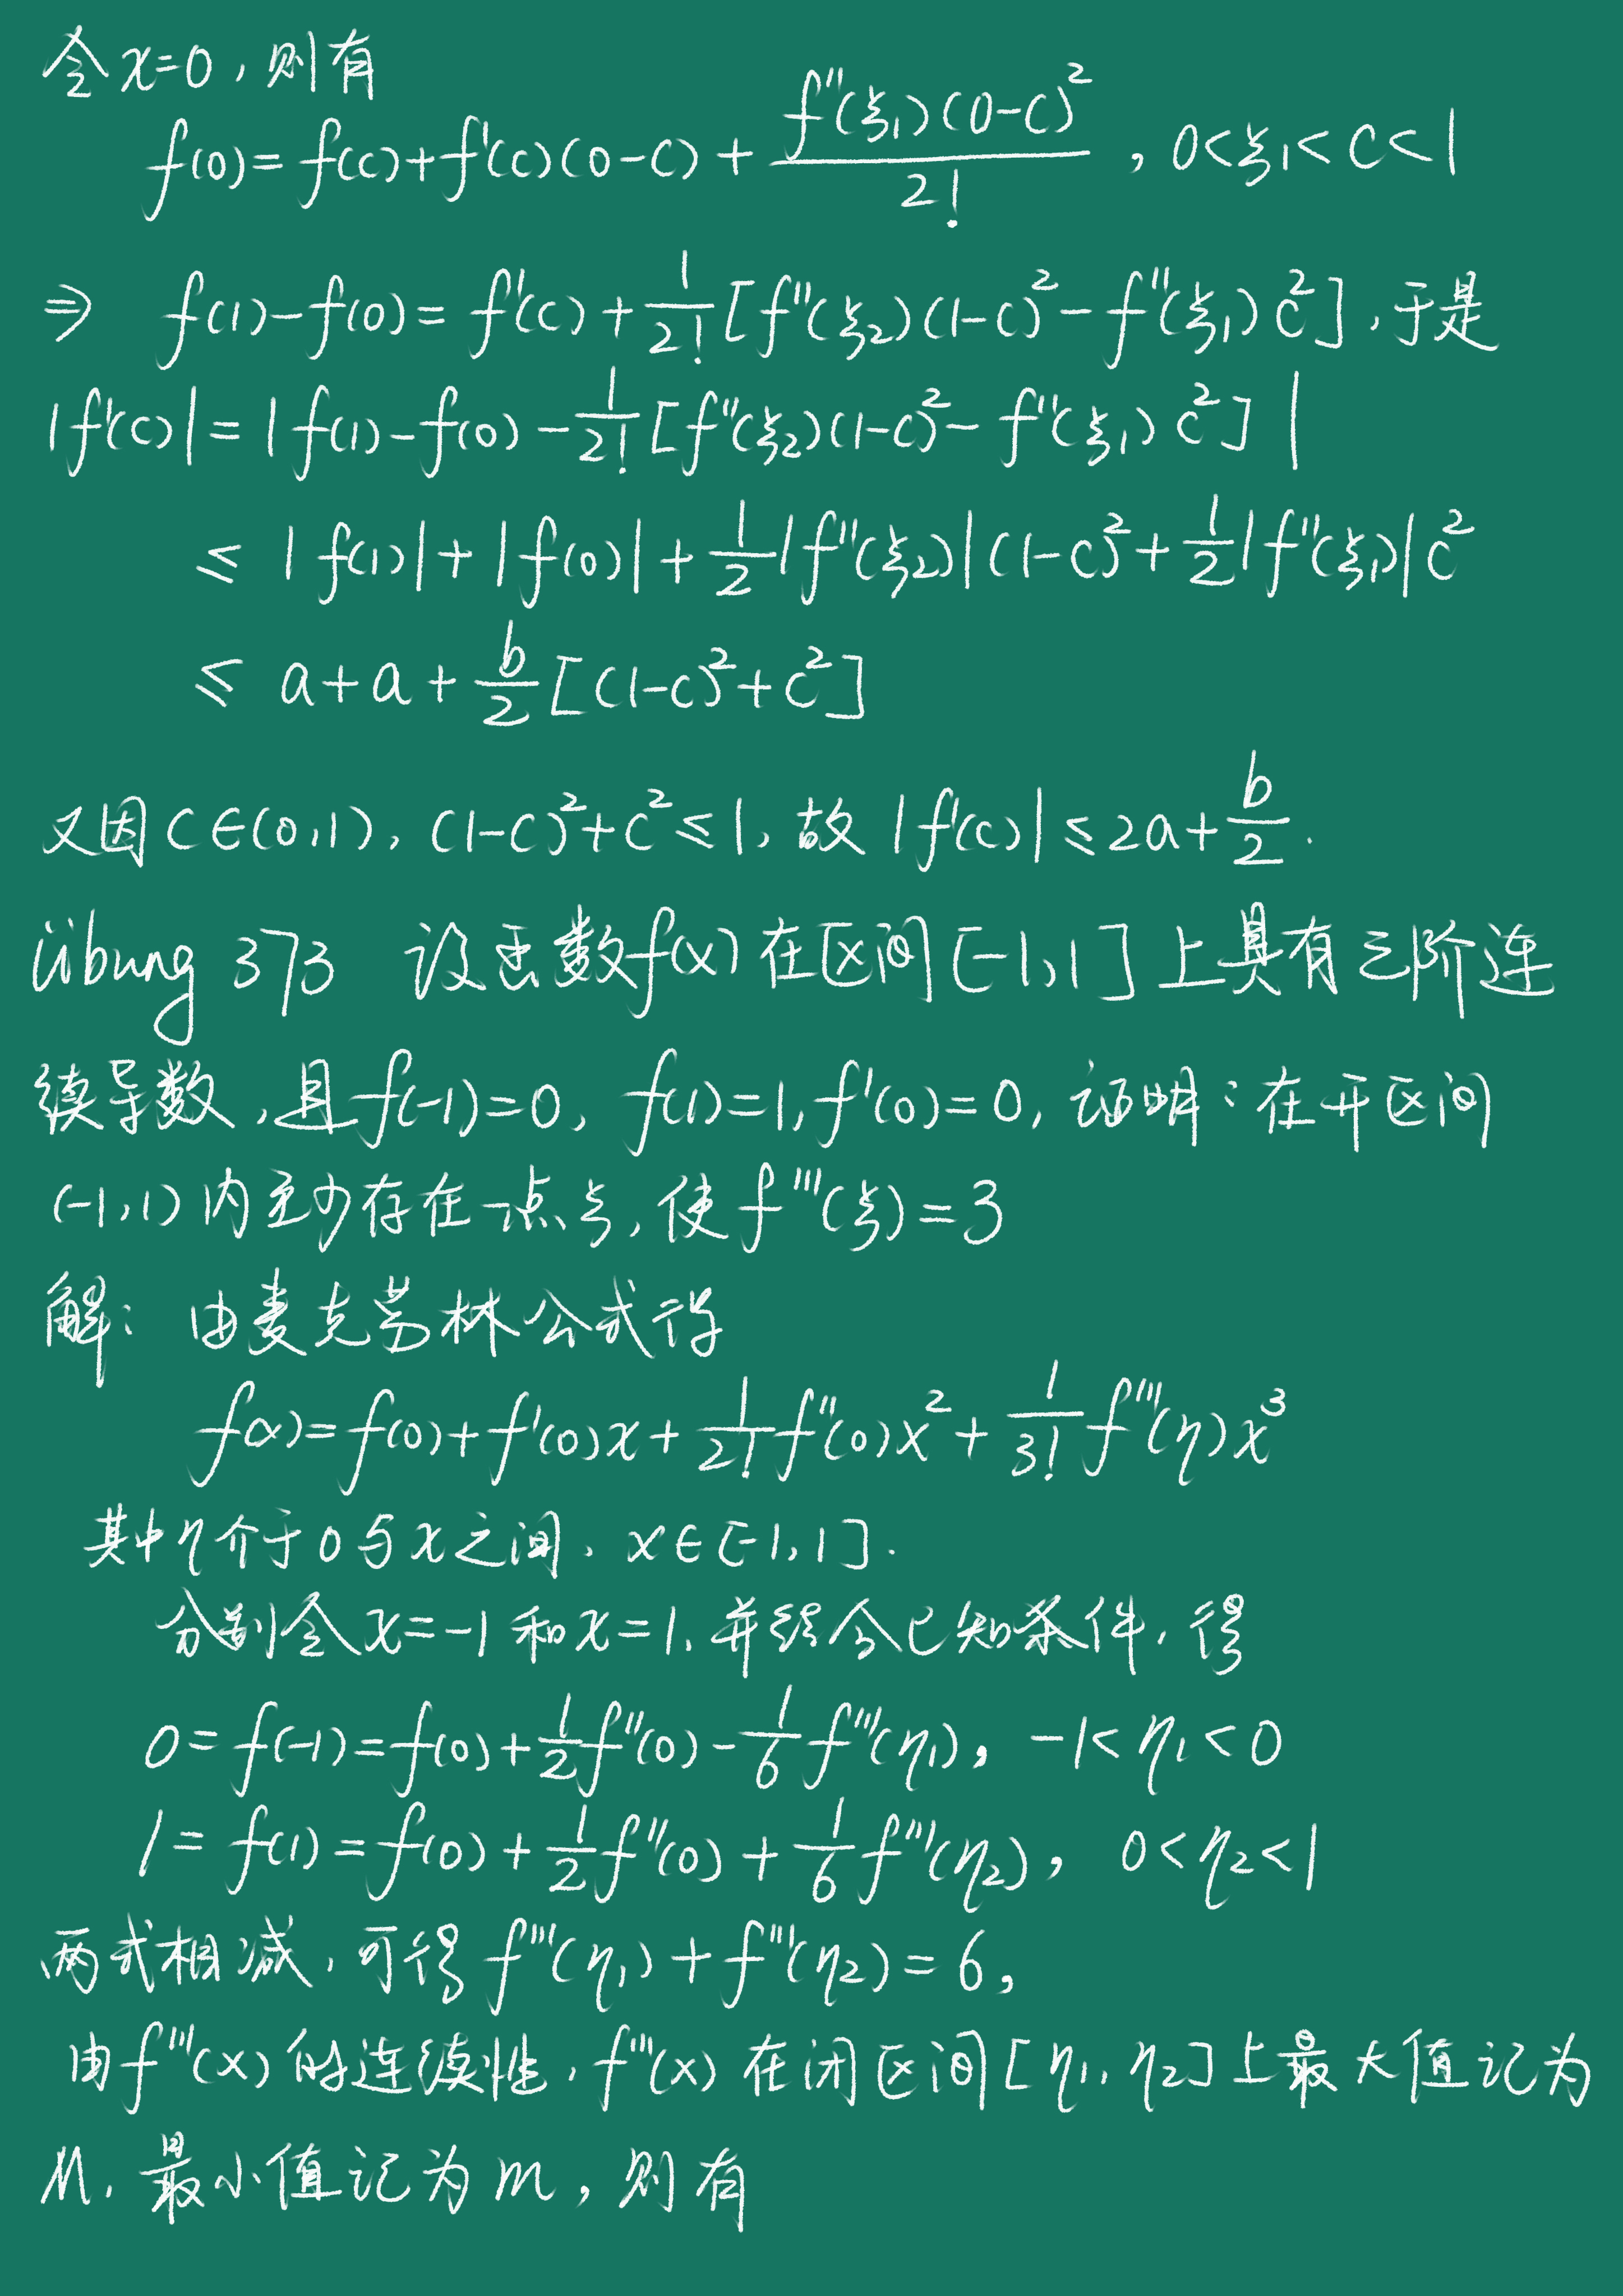 令x=0,则有
f(0)=f(c)+f'(c)(0-c)+\frac{f''(ξ₁)(0-c)²}{2!}, 0<ξ₁<c<1
⇒ f(1)-f(0)=f'(c)+\frac{1}{2!}[f''(ξ₂)(1-c)²-f''(ξ₁)c²],于是
|f'(c)|=|f(1)-f(0)-\frac{1}{2!}[f''(ξ₂)(1-c)²-f''(ξ₁)c²]|
≤|f(1)|+|f(0)|+\frac{1}{2}|f''(ξ₂)|(1-c)²+\frac{1}{2}|f''(ξ₁)|c²
≤a+a+\frac{b}{2}[(1-c)²+c²]
又因c∈(0,1),(1-c)²+c²≤1,故|f'(c)|≤2a+\frac{b}{2}.
übung 373 设函数f(x)在区间[-1,1]上具有三阶连
续导数,且f(-1)=0, f(1)=1,f'(0)=0,证明:在开区间
(-1,1)内至少存在一点ξ,使f'''(ξ)=3
解: 由麦克劳林公式得
f(x)=f(0)+f'(0)x+\frac{1}{2!}f''(0)x²+\frac{1}{3!}f'''(η)x³
其中η介于0与x之间,x∈[-1,1].
分别令x=-1和x=1,并结合已知条件,得
0=f(-1)=f(0)+\frac{1}{2}f''(0)-\frac{1}{6}f'''(η₁), -1<η₁<0
1=f(1)=f(0)+\frac{1}{2}f''(0)+\frac{1}{6}f'''(η₂), 0<η₂<1
两式相减,可得f'''(η₁)+f'''(η₂)=6,
由f'''(x)的连续性,f'''(x)在闭区间[η₁,η₂]上最大值记为
M,最小值记为m,则有